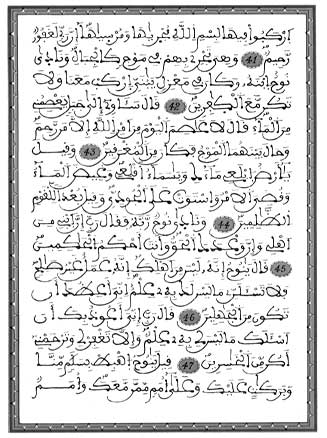 اركبوا فيها بسم الله مجريها ومرسيها إن ربي لغفور
رحيم 41 وهي تجري بهم في موج كالجبال ونادى
نوح ابنه وكان في معزل يبني اركب معنا ولا
تكن مع الكفرين 42 قال سآوي إلى جبل يعصمني
من الماء قال لا عاصم اليوم من أمر الله إلا من رحم
وحال بينهما الموج فكان من المغرقين 43 وقيل
يأرض ابلعي ماءك ويسماء أقلعي وغيض الماء
وقضي الأمر واستوت على الجودي وقيل بعدا للقوم
الظلمين 44 ونادى نوح ربه فقال رب إن ابني من
أهلي وإن وعدك الحق وأنت أحكم الحكمين
45 قال ينوح إنه ليس من أهلك إنه عمل غير صلح
فلا تسئلن ما ليس لك به علم إني أعظك أن
تكون من الجهلين 46 قال رب إني أعوذ بك أن
أسئلك ما ليس لي به علم وإلا تغفر لي وترحمني
أكن من الخسرين 47 قيل ينوح اهبط بسلم منا
وبركت عليك وعلى أمم ممن معك وأمم